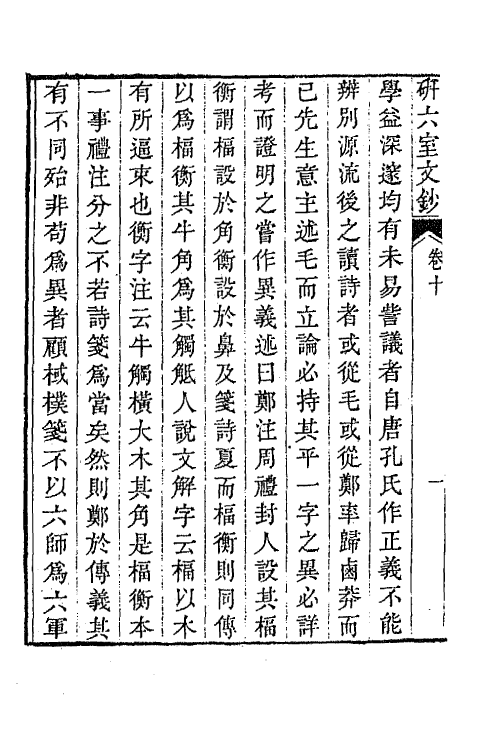 研六室文鈔 卷十 一
學益深邃均有未易訾議者自唐孔氏作正義不能
辨別源流後之讀詩者或從毛或從鄭率歸鹵莽而
已先生意主述毛而立論必持其平一字之異必詳
考而證明之嘗作異義述曰鄭注周禮封人設其楅
衡謂楅設於角衡設於鼻及箋詩夏而楅衡則同傳
以爲楅衡其牛角爲其觸觝人說文解字云楅以木
有所逼束也衡字注云牛觸橫大木其角是楅衡本
一事禮注分之不若詩箋爲當矣然則鄭於傳義其
有不同殆非苟爲異者顧棫樸箋不以六師爲六軍